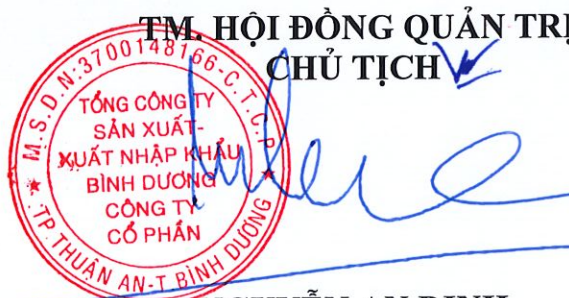 TM. HỘI ĐỒNG QUẢN TRỊ
CHỦ TỊCH
M.S.D.N:3700148166-C.T.C.P
TỔNG CÔNG TY
SẢN XUẤT-
XUẤT NHẬP KHẨU
BÌNH DƯƠNG
CÔNG TY
CỔ PHẦN
TP.THUẬN AN-T BÌNH DƯƠNG
NGUYỄN AN ĐỊNH